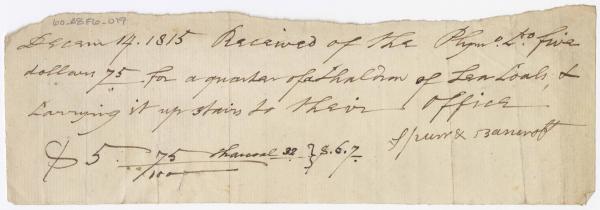 60.AB.F6.019
Decem 14. 1815 Received of the Plymo. Do five
dollars 75 for a quarter of a Chaldron of Sea Coals, &
Carrying it up stairs to their Office
Spurr & Bancroft
$ 5. 75/100 Charcoal 92 } 8.6.7